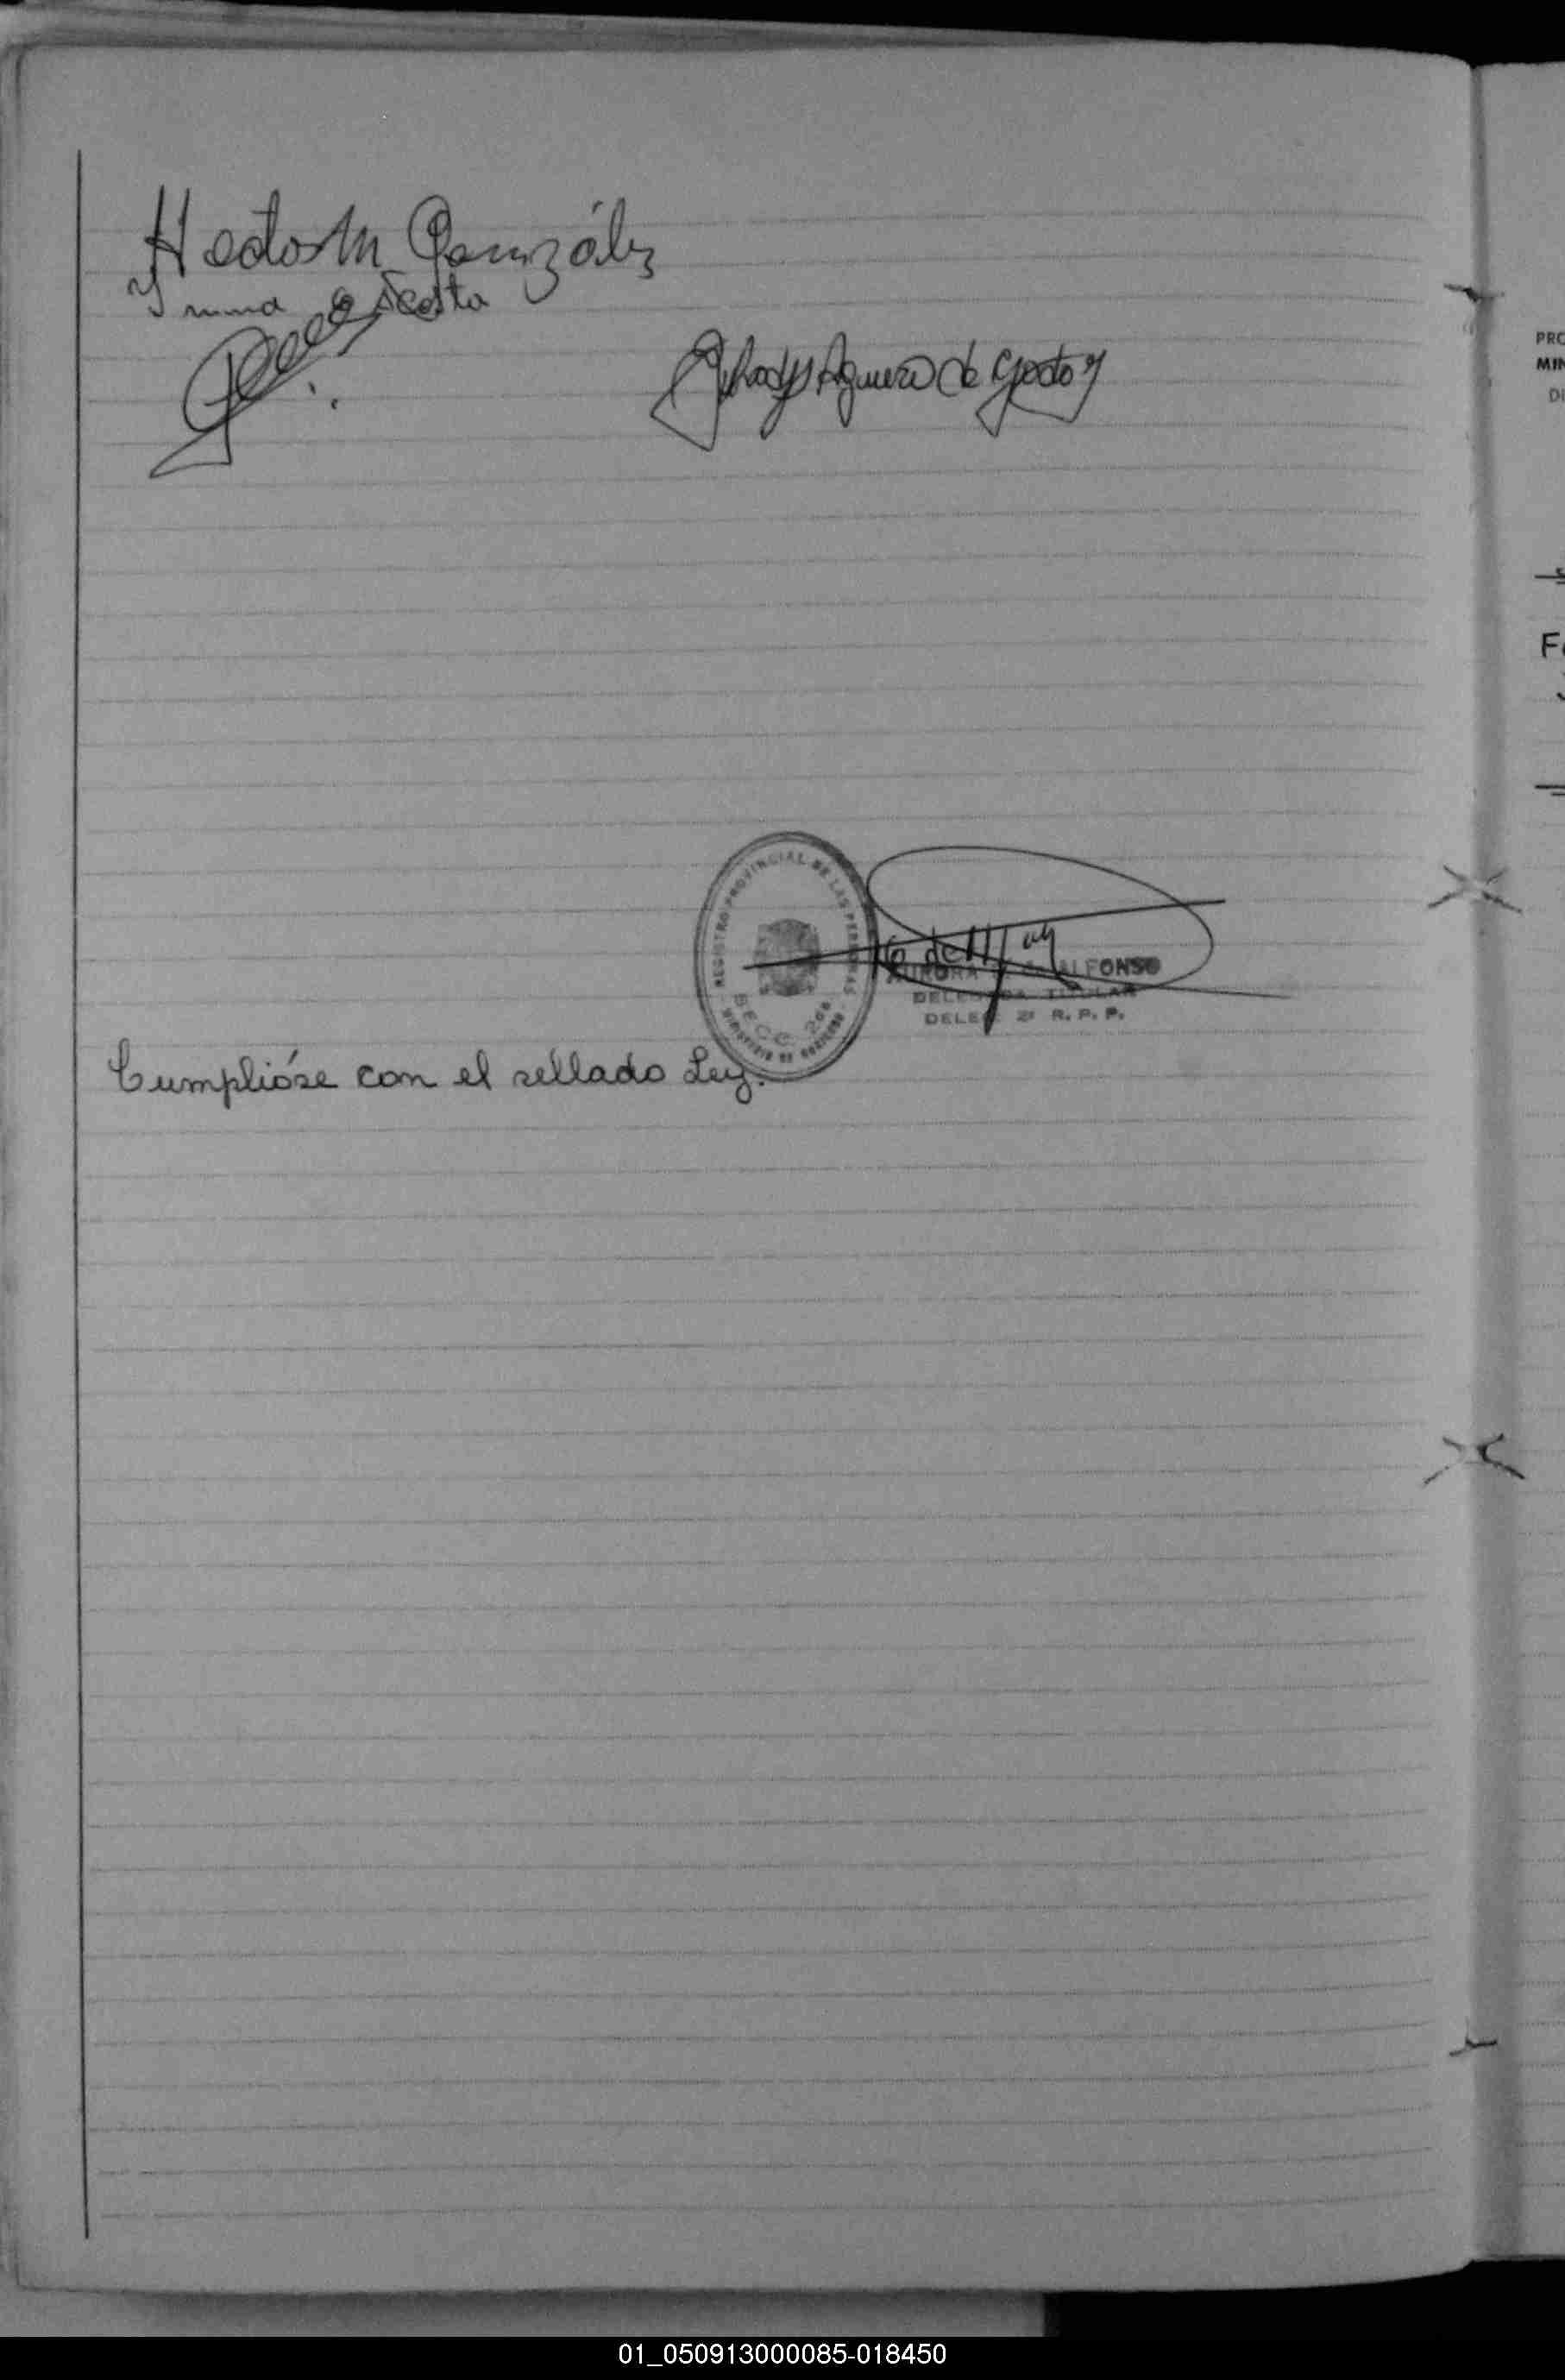 Hector M González
Irma E Acosta
Gladys Aguero de Godoy
REGISTRO PROVINCIAL DE LAS PERSONAS
SECC. 2
MINISTERIO DE GOBIERNO
AURORA ALFONSO
DELEGADA TITULAR
DELEG 2ª R. P. P.
Cumplióse con el sellado Ley.
PRO
MIN
DI
F
01_050913000085-018450